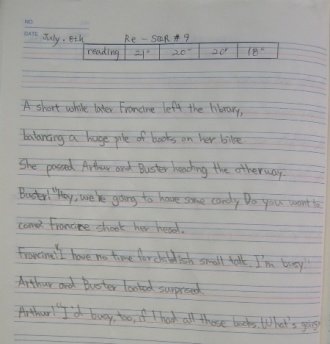 NO.
DATE July. 8th Re - S&R #9
reading 21" 20" 20" 18"
A short while later Francine left the library,
balancing a huge pile of books on her bike
She passed Arthur and Buster heading the otherway.
Buster: "Hey, we're going to have some candy Do you want to
come? Francine shook her head.
Francine: "I have no time for childish small talk. I'm busy"
Arthur and Buster looked surprised
Arthur: "I'd busy, too, if I had all those books. What's going